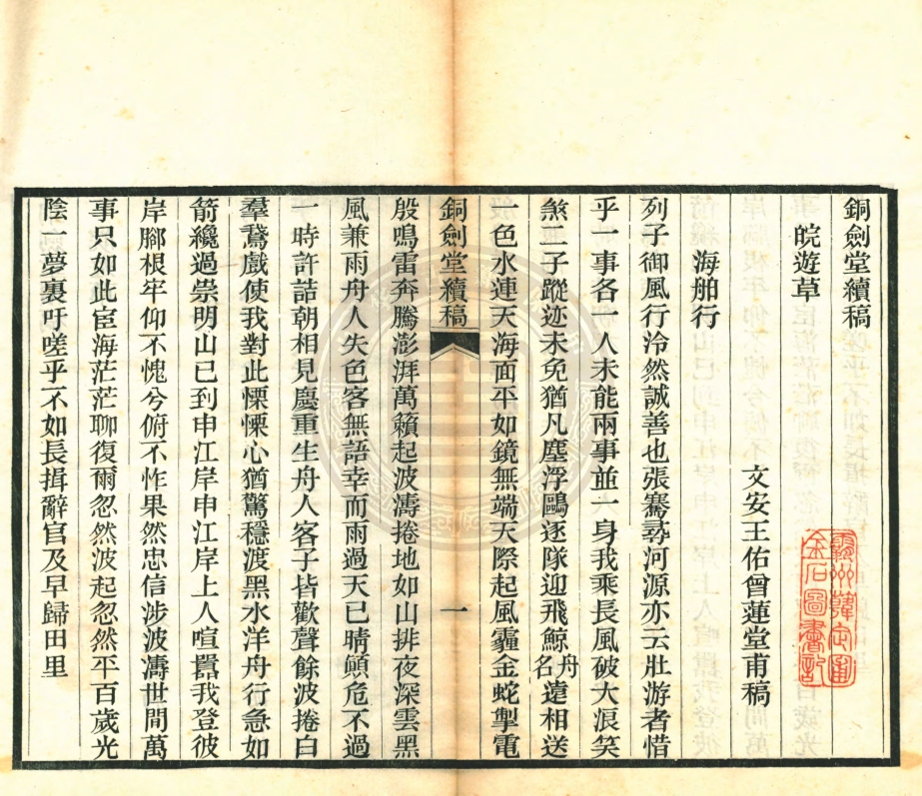 銅劍堂續稿
皖遊草
文安王佑曾蓮堂甫稿
海舶行
列子御風行泠然誠善也張騫尋河源亦云壯游者惜
乎一事各一人未能兩事並一身我乘長風破大浪笑
煞二子蹤迹未免猶凡塵浮鷗逐隊迎飛鯨舟名遠相送
一色水連天海面平如鏡無端天際起風霾金蛇掣電
銅劍堂續稿
一
殷鳴雷奔騰澎湃萬籟起波濤捲地如山排夜深雲黑
風兼雨舟人失色客無語幸而雨過天已晴顛危不過
一時許詰朝相見慶重生舟人客子皆歡聲餘波捲白
羣鵞戲使我對此慄慄心猶驚穩渡黑水洋舟行急如
箭纔過崇明山已到申江岸申江岸上人喧囂我登彼
岸腳根牢仰不愧兮俯不怍果然忠信涉波濤世間萬
事只如此宦海茫茫聊復爾忽然波起忽然平百歲光
陰一夢裏吁嗟乎不如長揖辭官及早歸田里
金石圖書記